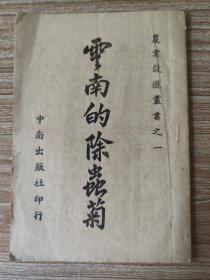 農業改進叢書之一
雲南的除蟲菊
中南出版社印行